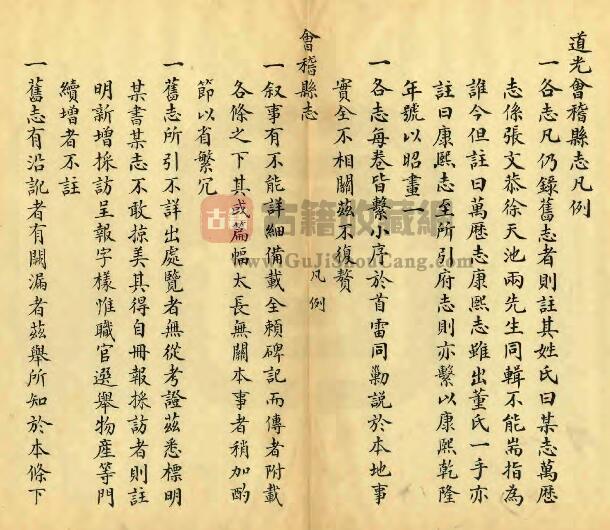 道光會稽縣志凡例
一各志凡仍錄舊志者則註其姓氏曰某志萬歷
志係張文恭徐天池兩先生同輯不能耑指為
誰今但註曰萬歷志康熙志雖出董氏一手亦
註曰康熙志至所引府志則亦繫以康熙乾隆
年號以昭畫一
一各志每卷皆繫小序於首雷同勦說於本地事
實全不相關茲不復贅
會稽縣志
凡例
一叙事有不能詳細備載全賴碑記而傳者附載
各條之下其或篇幅太長無關本事者稍加酌
節以省繁冗
一舊志所引不詳出處覽者無從考證茲悉標明
某書某志不敢掠美其得自冊報採訪者則註
明新增採訪呈報字樣惟職官選舉物產等門
續增者不註
一舊志有沿訛者有闕漏者茲舉所知於本條下
古籍收藏網
www.GuJiShouCang.com